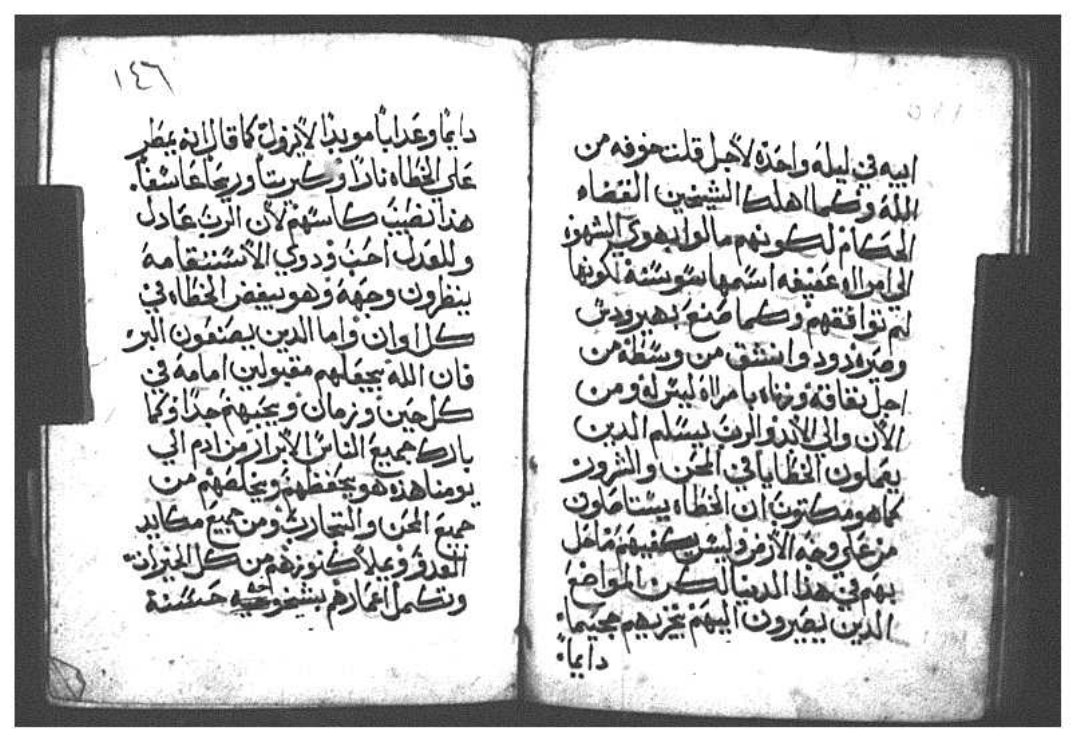 ابيه في ليلة واحدة لاجل قلت خوفه من
الله وكما اهلك الشيخين القضاه
الحكام لكونهم مالوا بهوي الشهوه
الي امراه عفيفه اسمها سوسنة لكونها
لم توافقهم وكما صنع بهيرودس
وصره دود وانشق من وسطه من
اجل نفاقه وزناه بامراة ليس له ومن
الان والي الابد والرب يسلم الدين
يعملون الخطايا في المحن والشرور
كما هو مكتوب ان الخطاه يستاصلون
من علي وجه الارض وليس يكفيهم ما حل
بهم في هذا الدنيا لكن المواضع
الدين يصيرون اليهم يخزيهم جحيما
دايما
١٤٦
دايما وعدابا موبدا لا يزول كما قال انه يمطر
علي الخطاه نارا وكبريتا وريحا عاصفا
هدا نصيب كاسهم لان الرب عادل
وللعدل احب ودوي الاستقامة
ينظرون وجهه وهو يبغض الخطاه في
كل اوان واما الدين يصنعون البر
فان الله يجعلهم مقبولين امامه في
كل حين وزمان ويحبهم جدا وكما
بارك جميع الناس الابرار من ادم الي
يومنا هده هو يحفظهم ويخلصهم من
جميع المحن والتجارب ومن جميع مكايد
العدو ويملا كنوزهم من كل الخيرات
وتكمل اعمارهم بشيخوخيه حسنة